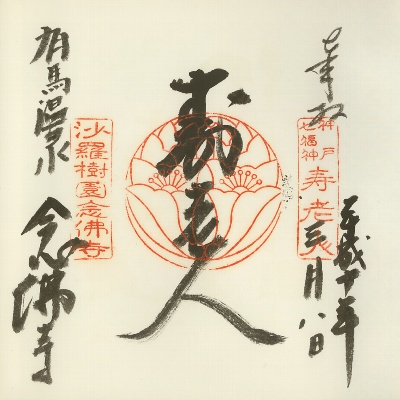 奉拝
神戸七福神
寿老人
平成十年
三月八日
寿老人
有馬温泉
沙羅樹園念佛寺
念佛寺